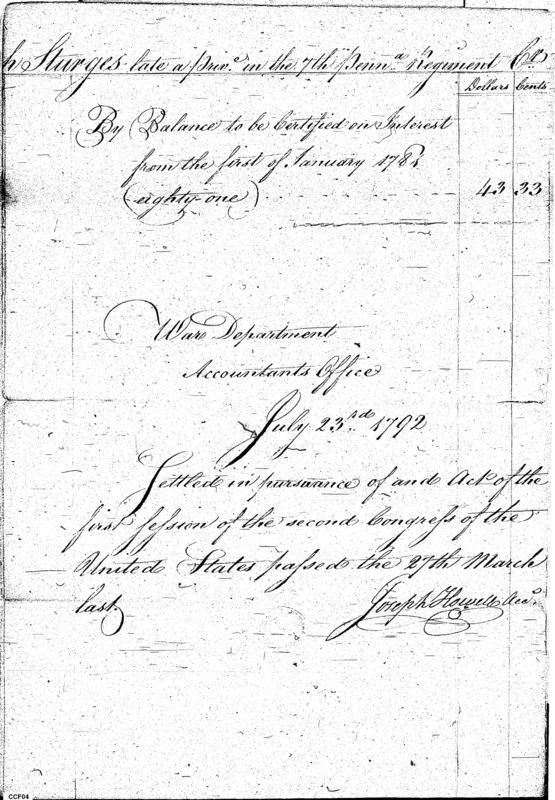 h Sturges late a Priv.e in the 7th Penn.a Regiment Cr
Dollars Cents
By Balance to be Certified on Interest
from the first of January 1781
(eighty-one) 43 33
War Department
Accountants Office
July 23.rd 1792
Settled in pursuance of and Act of the
first session of the second Congress of the
United States passed the 27th March
last.
Joseph Howell Acct.
CCF04